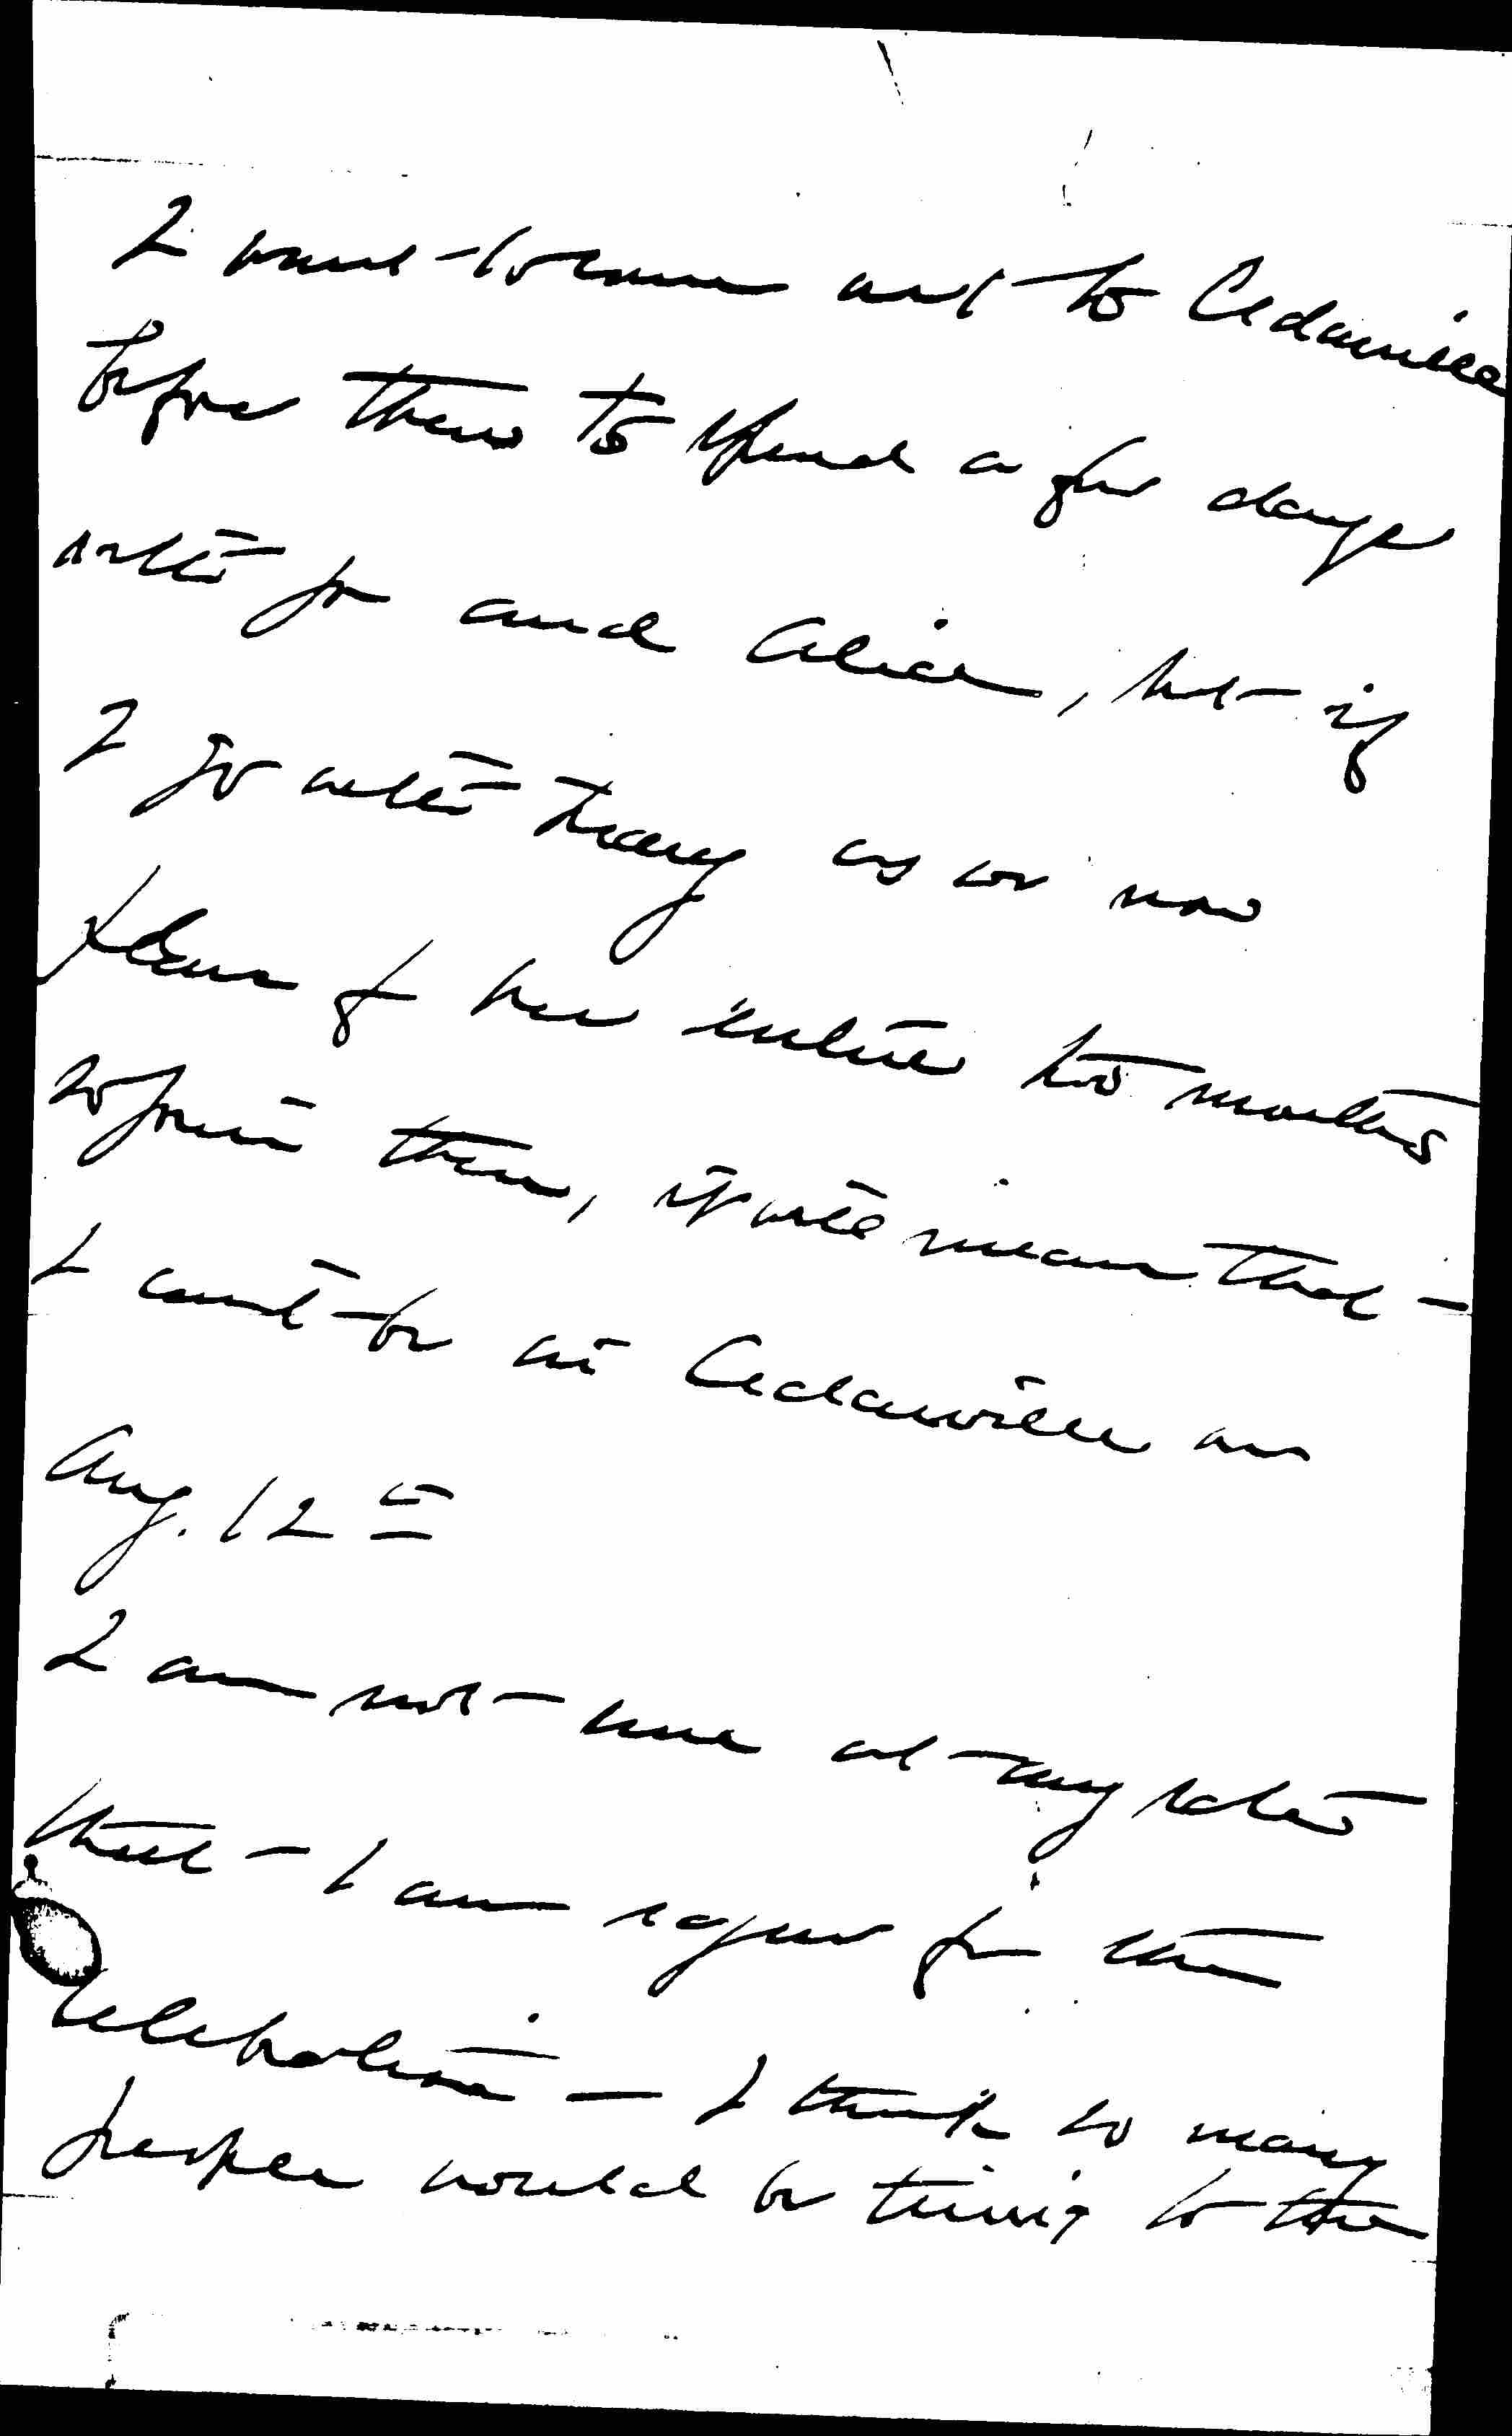 I want to come out to Cedarville
before then to spend a few days
with you and Alice, but if
I go with Mary as we now
plan for her entire two months
 then, it will mean that
I can't be in Cedarville on
Aug. 12th
I am not sure at any rate
that I am eager for the
celebration – I think so many
people would be tiring to the